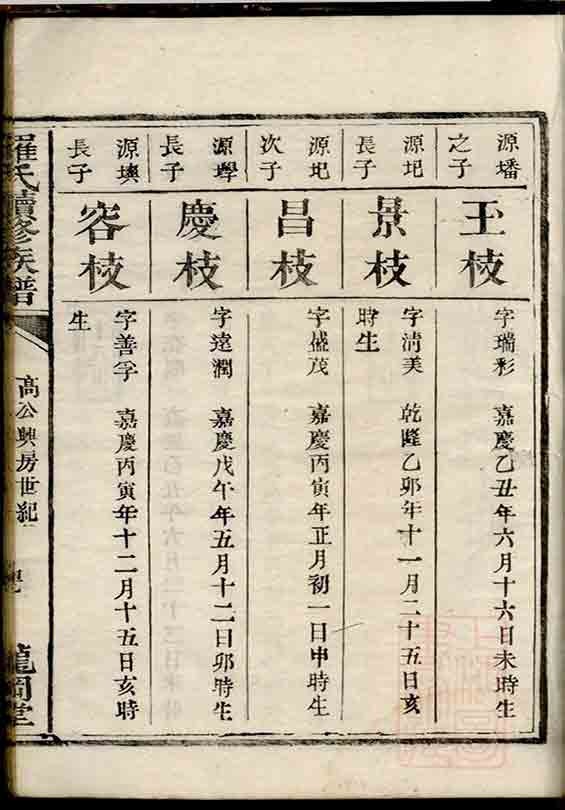 源墦
之子
玉枝
字瑞彩 嘉慶乙丑年六月十六日未時生
源圯
長子
景枝
字清美 乾隆乙卯年十一月二十五日亥
時生
源圯
次子
昌枝
字盛茂 嘉慶丙寅年正月初一日申時生
源壆
長子
慶枝
字達潤 嘉慶戊午年五月十二日卯時生
源墺
長子
容枝
字善孚 嘉慶丙寅年十二月十五日亥時
生
羅氏續修族譜
高公興房世紀
龍岡堂